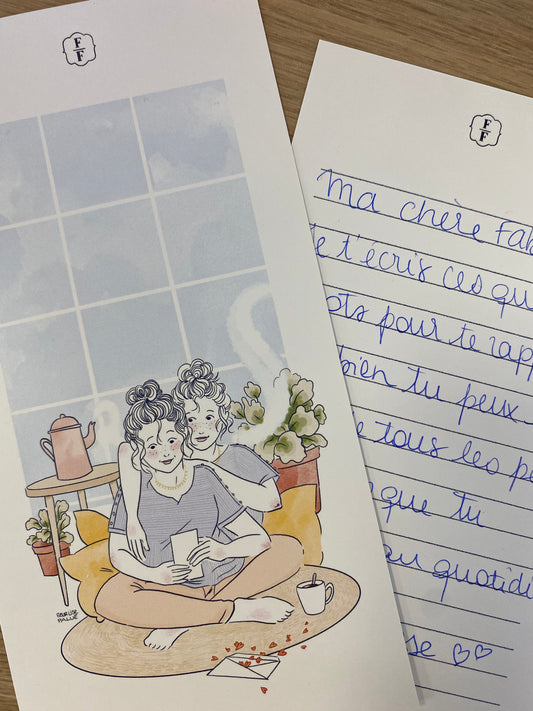 F
F
F
F
Ma chère Fab
Je t'écris ces qu
ots pour te rapp
bien tu peux
e tous les pe
que tu
au quotidi
se